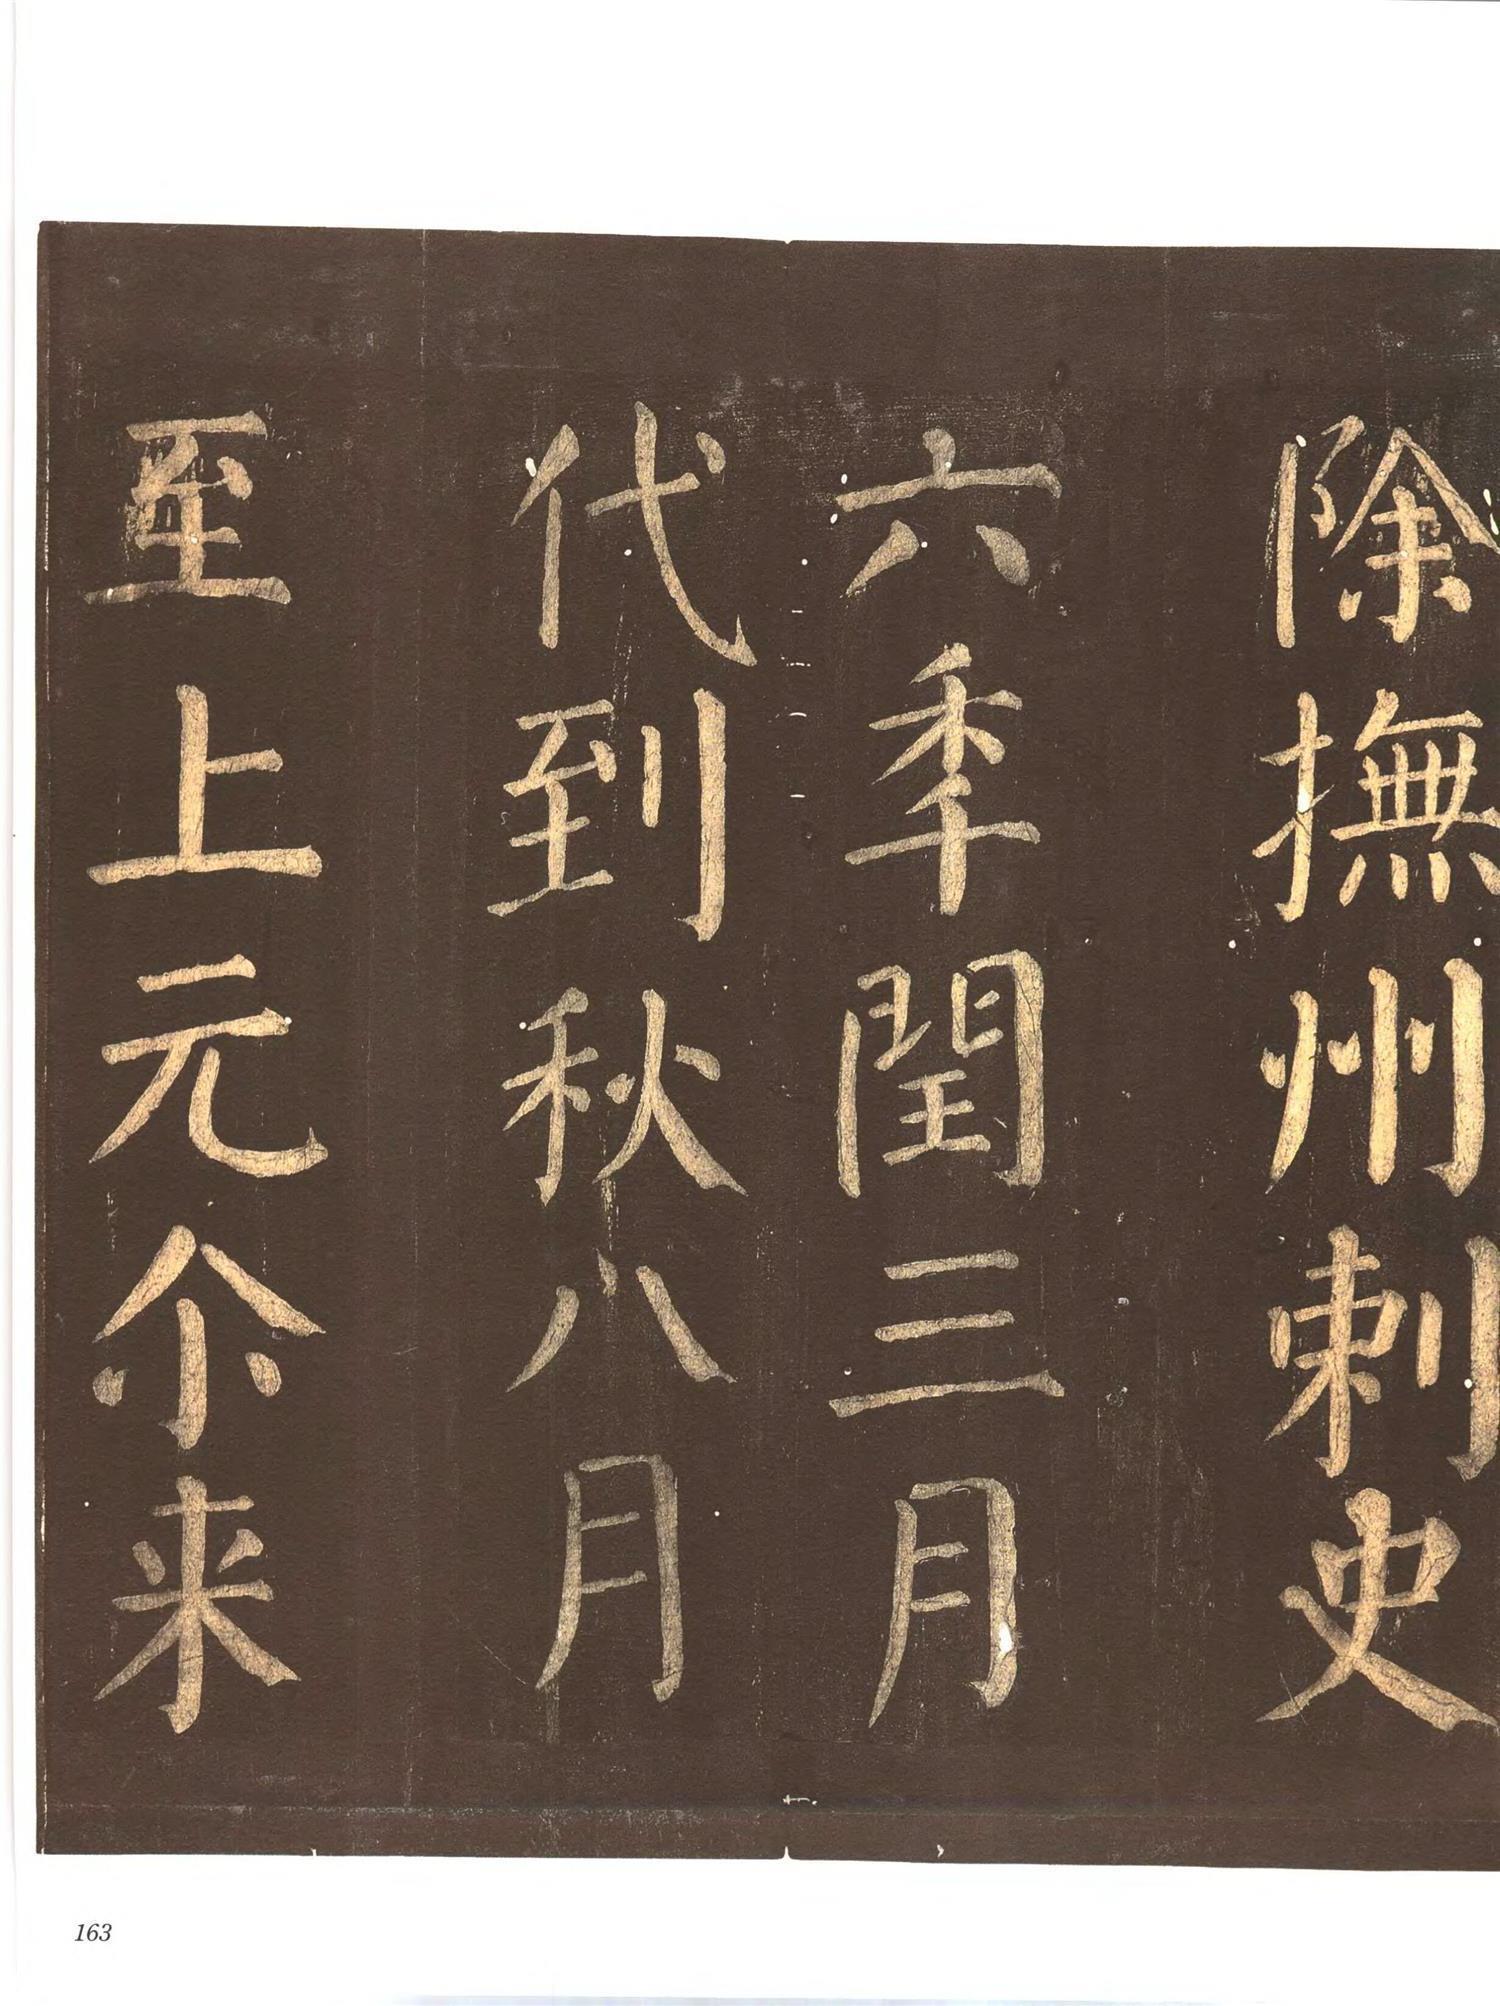 除撫州刺史
六年閏三月
代到秋八月
至上元尒来
163